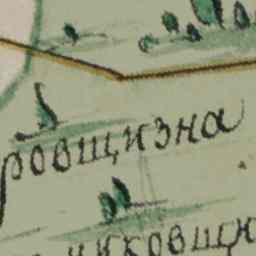 ровщизна
иковщи